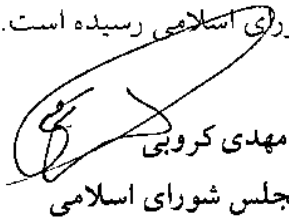 ورای اسلامی رسیده است.
مهدی کروبی
جلس شورای اسلامی